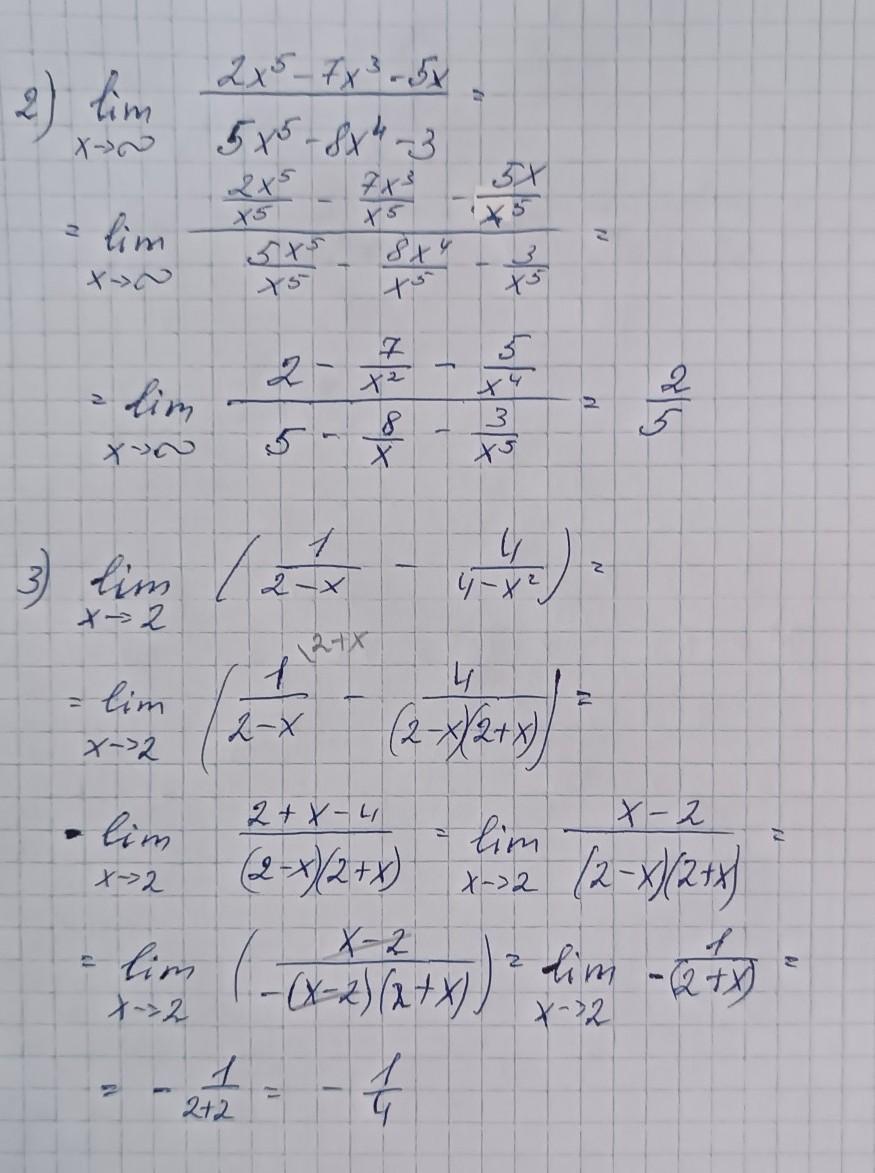 2) lim x→∞ (2x⁵ - 7x³ - 5x)/(5x⁵ - 8x⁴ - 3) =
= lim x→∞ (2x⁵/x⁵ - 7x³/x⁵ - 5x/x⁵)/(5x⁵/x⁵ - 8x⁴/x⁵ - 3/x⁵) =
= lim x→∞ (2 - 7/x² - 5/x⁴)/(5 - 8/x - 3/x⁵) = 2/5
3) lim x→2 (1/(2-x) - 4/(4-x²)) =
= lim x→2 (1/(2-x) \2+x - 4/((2-x)(2+x))) =
- lim x→2 (2+x-4)/((2-x)(2+x)) = lim x→2 (x-2)/((2-x)(2+x)) =
= lim x→2 ((x-2)/(-(x-2)(2+x))) = lim x→2 -1/(2+x) =
= - 1/(2+2) = - 1/4